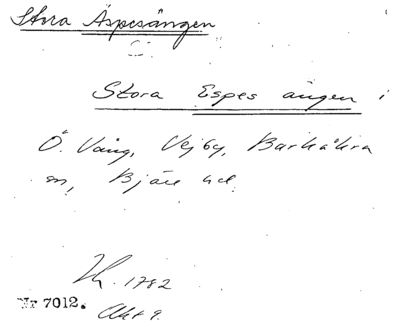 Stora Äspesängen
Stora Espes ängen i
Ö. Vång, Vejby, Barkåkra
sn, Bjäre hd.
1782
Nr 7012.
Akt 9.